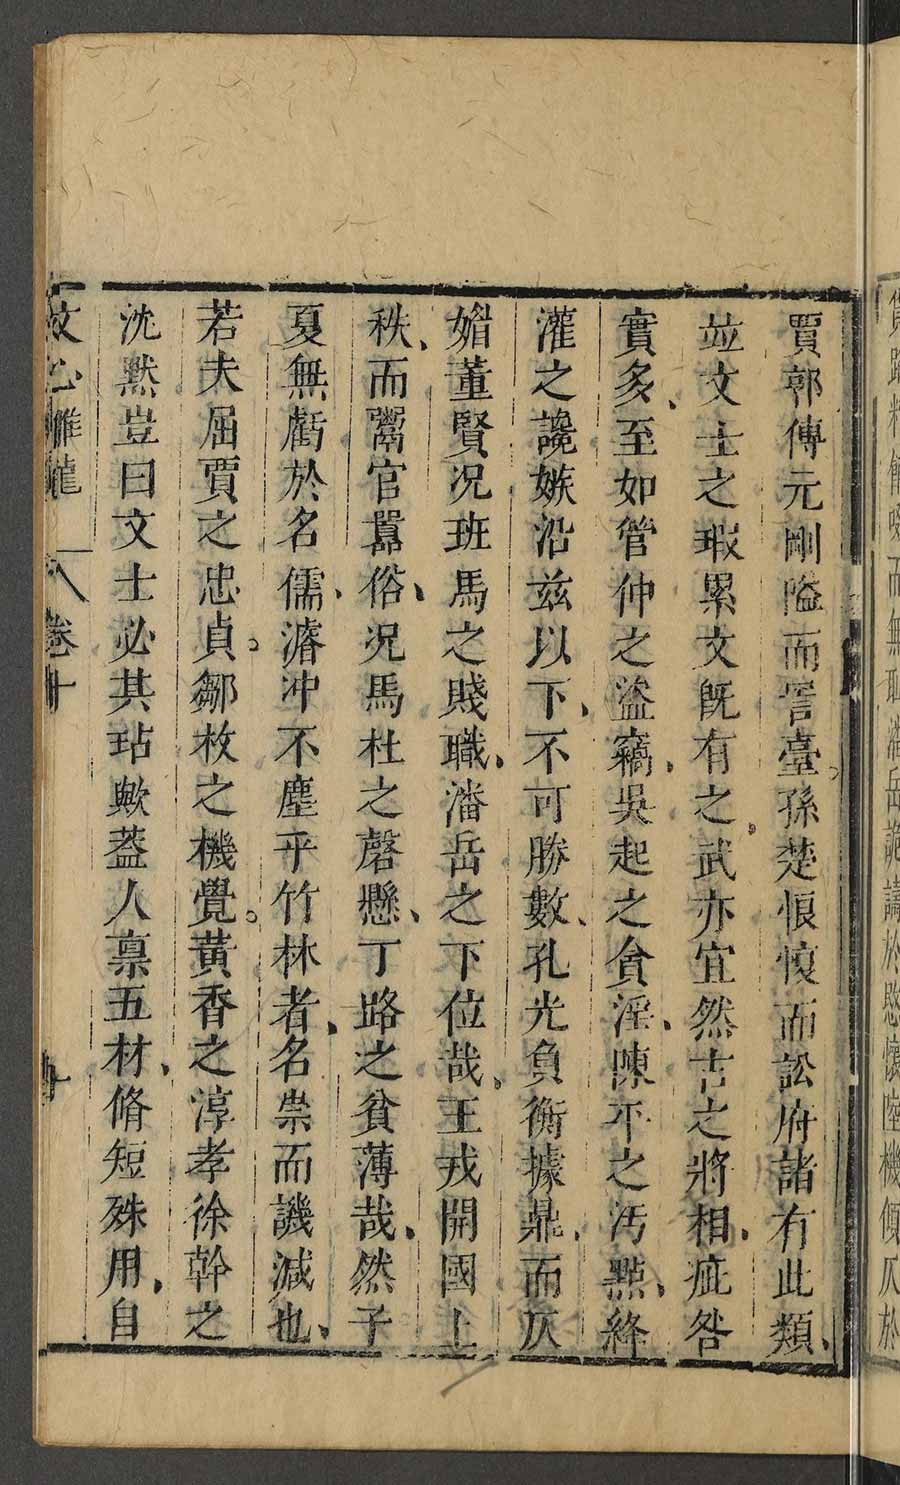 貨路粹餔啜而無耻潘岳詭譸於愍懷陸機傾仄於
賈郭傅元剛隘而詈臺。孫楚狠愎而訟府諸有此類、
竝文士之瑕累文旣有之、武亦宜然古之將相、疵咎
實多、至如管仲之盜竊、吳起之貪淫、陳平之汚點、絳
灌之讒嫉沿兹以下、不可勝數、孔光負衡據鼎、而仄
媚董賢况班馬之賤職、潘岳之下位哉。王戎開國上
秩、而鬻官囂俗、况馬杜之磬懸、丁路之貧薄哉、然子
夏無虧於名儒、濬冲不塵乎竹林者、名崇而譏減也、
若夫屈賈之忠貞。鄒枚之機覺。黃香之淳孝徐幹之
沈黙豈曰文士必其玷歟葢人禀五材、脩短殊用、自
文心雕龍 卷十 十